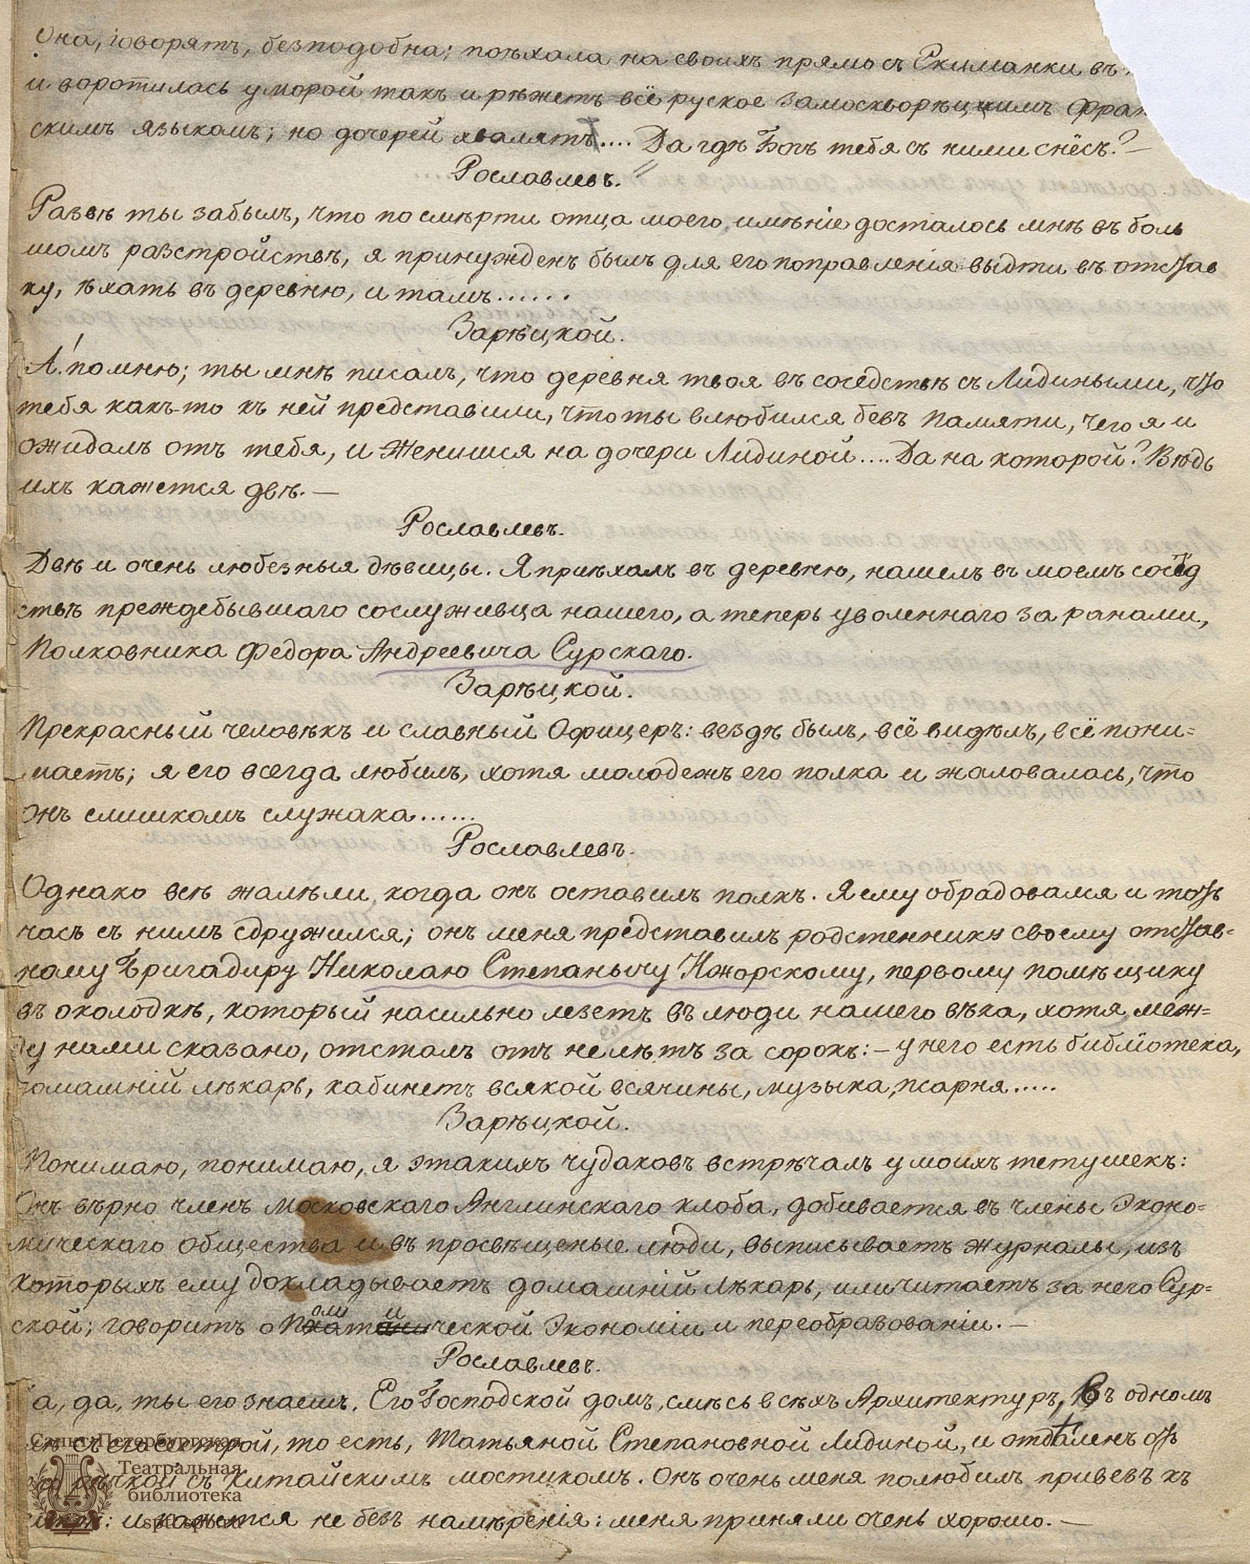 Она, говорятъ, безподобна; поѣхала на своихъ прямо съ Екиманки въ
и воротилась уморой такъ и рѣжетъ всё руское Замоскворѣцкимъ Фран
скимъ языкомъ; но дочерей хвалятъ.... Да гдѣ Богъ тебя съ ними снёсъ? —
Рославлевъ.
Развѣ ты забылъ, что по смѣрти отца моего, имѣніе досталось мнѣ въ боль
шомъ разстройствѣ, я принужденъ былъ для его поправленія выдти въ отстав
ку, ѣхать въ деревню, и тамъ......
Зарѣцкой.
А! помню; ты мнѣ писалъ, что деревня твоя въ соседствѣ съ Лидиными, что
тебя какъ-то къ ней представили, что ты влюбился безъ памяти, чего я и
ожидалъ отъ тебя, и женишся на дочери Лидиной.... Да на которой? Вѣдь
ихъ кажется двѣ. —
Рославлевъ.
Двѣ и очень любезныя дѣвицы. Я приѣхалъ въ деревню, нашелъ въ моемъ сосѣд
ствѣ преждебывшаго сослуживца нашего, а теперь уволеннаго за ранами,
Полковника Федора Андреевича Сурскаго.
Зарѣцкой.
Прекрасный человѣкъ и славный Офицеръ: вездѣ былъ, всё видѣлъ, всё пони=
маетъ; я его всегда любилъ, хотя молодежь его полка и жаловалась, что
онъ слишкомъ служака......
Рославлевъ.
Однако всѣ жалѣли, когда онъ оставилъ полкъ. Я ему обрадовался и тот
часъ съ нимъ сдружился; онъ меня представилъ родственнику своему отстав=
ному Бригадиру Николаю Степанычу Ижорскому, первому помѣщику
въ околодкѣ, который насильно лезетъ въ люди нашего вѣка, хотя меж=
ду нами сказано, отсталъ отъ нелѣтъ за сорокъ: — у него есть библіотека,
домашній лѣкарь, кабинетъ всякой всячины, музыка, псарня.....
Зарѣцкой.
Понимаю, понимаю, я этакихъ чудаковъ встрѣчалъ у моихъ тетушекъ:
Онъ вѣрно членъ Московскаго Англинскаго клоба, добивается въ члены Эконо=
мическаго общества и въ просвѣщеные люди, выписываетъ журналы, изъ
которыхъ ему докладываетъ домашній лѣкарь, или читаетъ за него Сур=
ской; говоритъ о Политической Экономіи и переобразованіи. —
Рославлевъ.
а, да, ты его знаешь. Его Господской домъ, смѣсь всѣхъ Архитектуръ, въ одномъ
съ его сестрой, то есть, Татьяной Степановной Лидиной, и отдаленъ от
рѣчкой съ Китайскимъ мостикомъ. Онъ очень меня полюбилъ, привезъ къ
и кажется не безъ намѣренія: меня приняли очень хорошо. —
Санкт-Петербургская
Театральная
библиотека